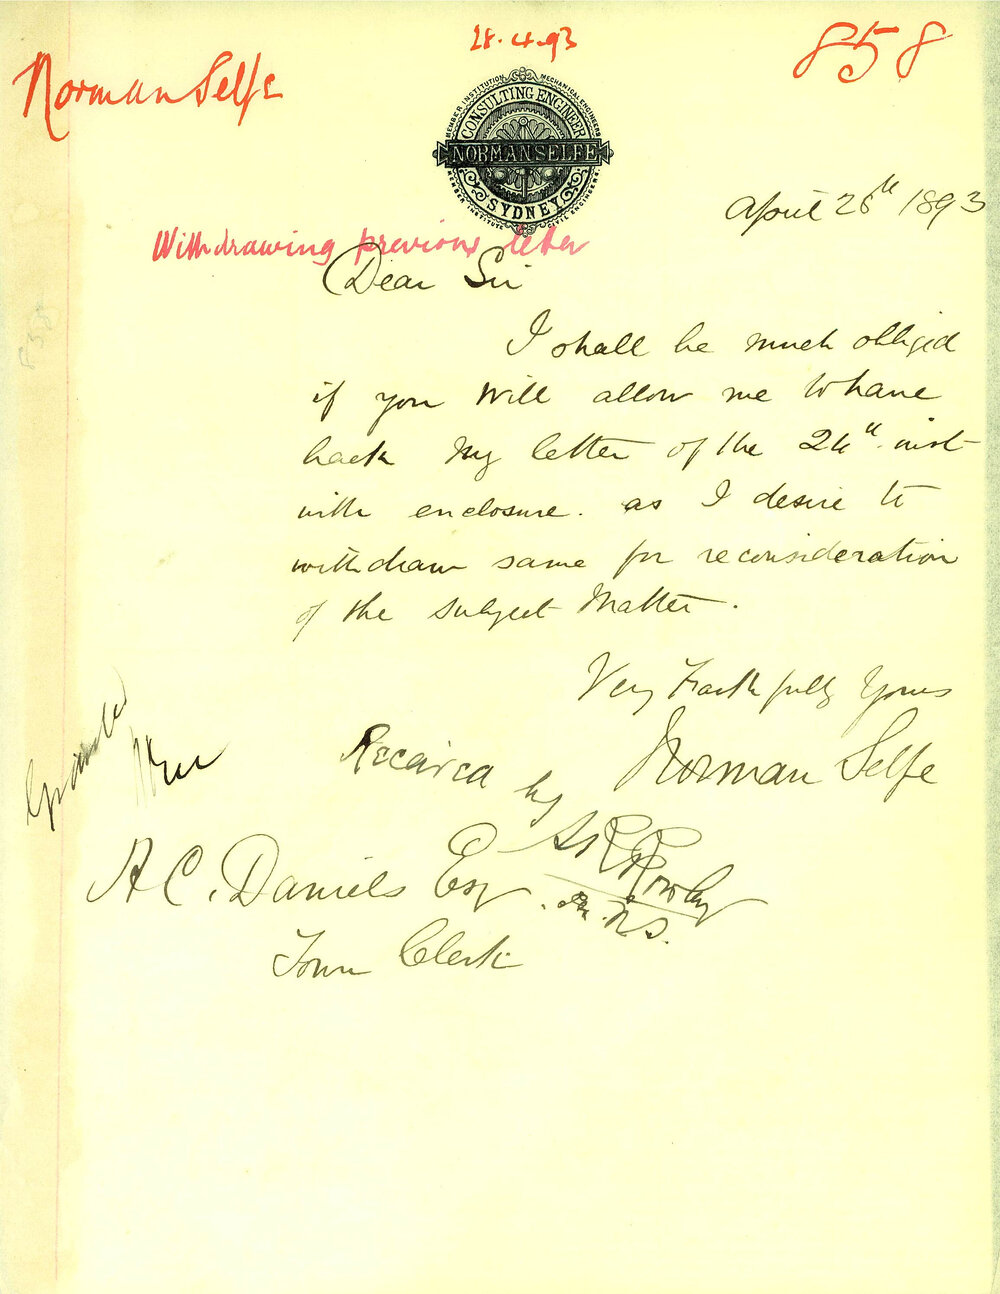 28.4.93
858
Norman Selfe
MEMBER INSTITUTION MECHANICAL ENGINEERS
CONSULTING ENGINEER
NORMAN SELFE
SYDNEY
MEMBER INSTITUTE CIVIL ENGINEERS
April 28th 1893
Withdrawing previous letter
Dear Sir
I shall be much obliged
if you will allow me to have
back my letter of the 26th inst
with enclosure. as I desire to
withdraw same for reconsideration
of the subject matter.
Very Faithfully Yours
Norman Selfe
Received by
Rowley
A C. Daniels Esq
Town Clerk
858